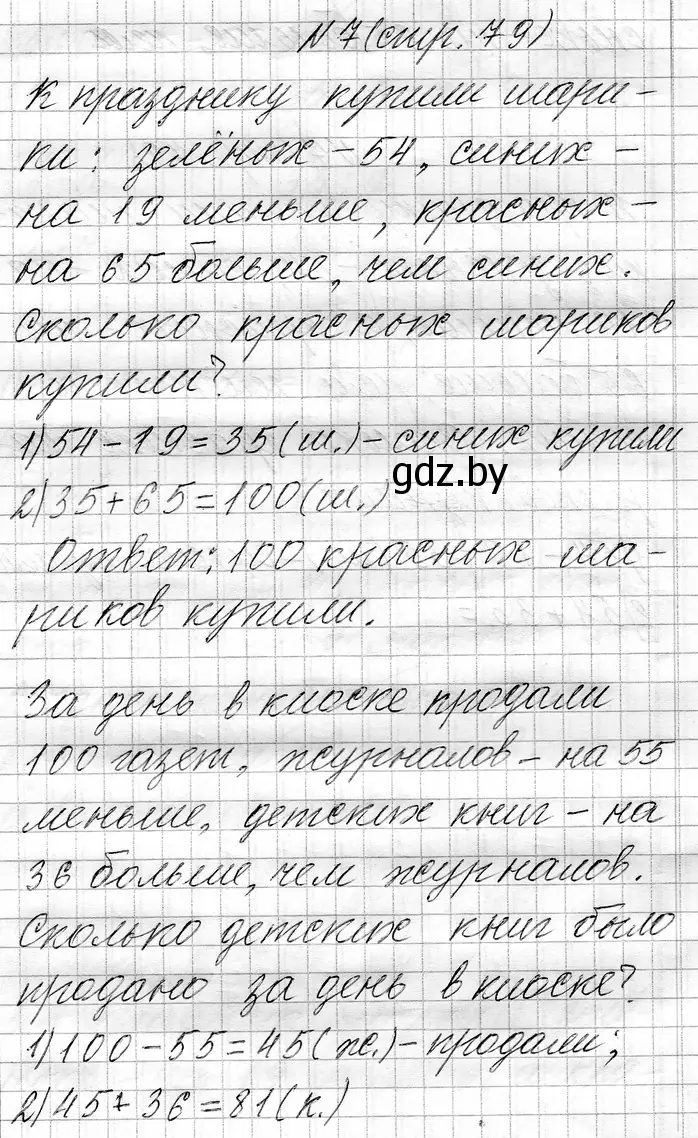 N 7 (стр. 79)
К празднику купили шари-
ки: зелёных - 54, синих -
на 19 меньше, красных -
на 65 больше, чем синих.
Сколько красных шариков
купили?
1) 54 - 19 = 35 (ш.) - синих купили
gdz.by
2) 35 + 65 = 100 (ш.)
Ответ: 100 красных ша-
риков купили.
За день в киоске продали
100 газет, журналов - на 55
меньше, детских книг - на
36 больше, чем журналов.
Сколько детских книг было
продано за день в киоске?
1) 100 - 55 = 45 (ж.) - продали;
2) 45 + 36 = 81 (к.)